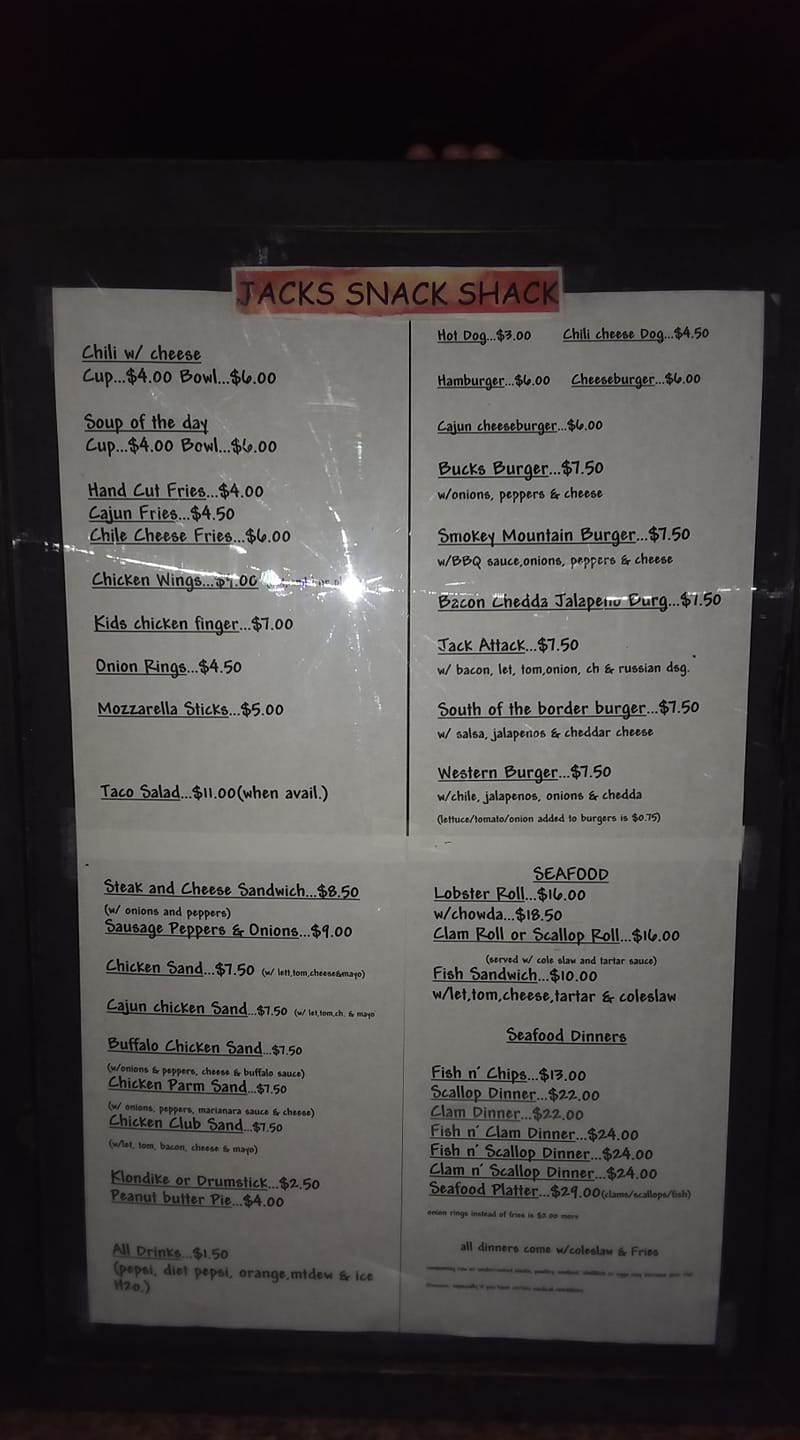 JACKS SNACK SHACK
Chili w/ cheese
Cup...$4.00 Bowl...$6.00
Soup of the day
Cup...$4.00 Bowl...$6.00
Hand Cut Fries...$4.00
Cajun Fries...$4.50
Chile Cheese Fries...$6.00
Chicken Wings...
Kids chicken finger...$7.00
Onion Rings...$4.50
Mozzarella Sticks...$5.00
Taco Salad...$11.00(when avail.)
Hot Dog...$3.00 Chili cheese Dog...$4.50
Hamburger...$6.00 Cheeseburger...$6.00
Cajun cheeseburger...$6.00
Bucks Burger...$7.50
w/onions, peppers & cheese
Smokey Mountain Burger...$7.50
w/BBQ sauce,onions, peppers & cheese
Bacon Chedda Jalapeno Burg...$7.50
Jack Attack...$7.50
w/ bacon, let, tom,onion, ch & russian dsg.
South of the border burger...$7.50
w/ salsa, jalapenos & cheddar cheese
Western Burger...$7.50
w/chile, jalapenos, onions & chedda
(lettuce/tomato/onion added to burgers is $0.75)
Steak and Cheese Sandwich...$8.50
(w/ onions and peppers)
Sausage Peppers & Onions...$9.00
Chicken Sand...$7.50 (w/ lett,tom,cheese&mayo)
Cajun chicken Sand...$7.50 (w/ let,tom,ch. & mayo
Buffalo Chicken Sand...$7.50
(w/onions & peppers, cheese & buffalo sauce)
Chicken Parm Sand...$7.50
(w/ onions, peppers, marianara sauce & cheese)
Chicken Club Sand...$7.50
(w/let, tom, bacon, cheese & mayo)
Klondike or Drumstick...$2.50
Peanut butter Pie...$4.00
All Drinks...$1.50
(pepsi, diet pepsi, orange,mtdew & ice
H2o.)
SEAFOOD
Lobster Roll...$16.00
w/chowda...$18.50
Clam Roll or Scallop Roll...$16.00
(served w/ cole slaw and tartar sauce)
Fish Sandwich...$10.00
w/let,tom,cheese,tartar & coleslaw
Seafood Dinners
Fish n' Chips...$13.00
Scallop Dinner...$22.00
Clam Dinner...$22.00
Fish n' Clam Dinner...$24.00
Fish n' Scallop Dinner...$24.00
Clam n' Scallop Dinner...$24.00
Seafood Platter...$29.00(clams/scallops/fish)
onion rings instead of fries is $2.00 more
all dinners come w/coleslaw & Fries